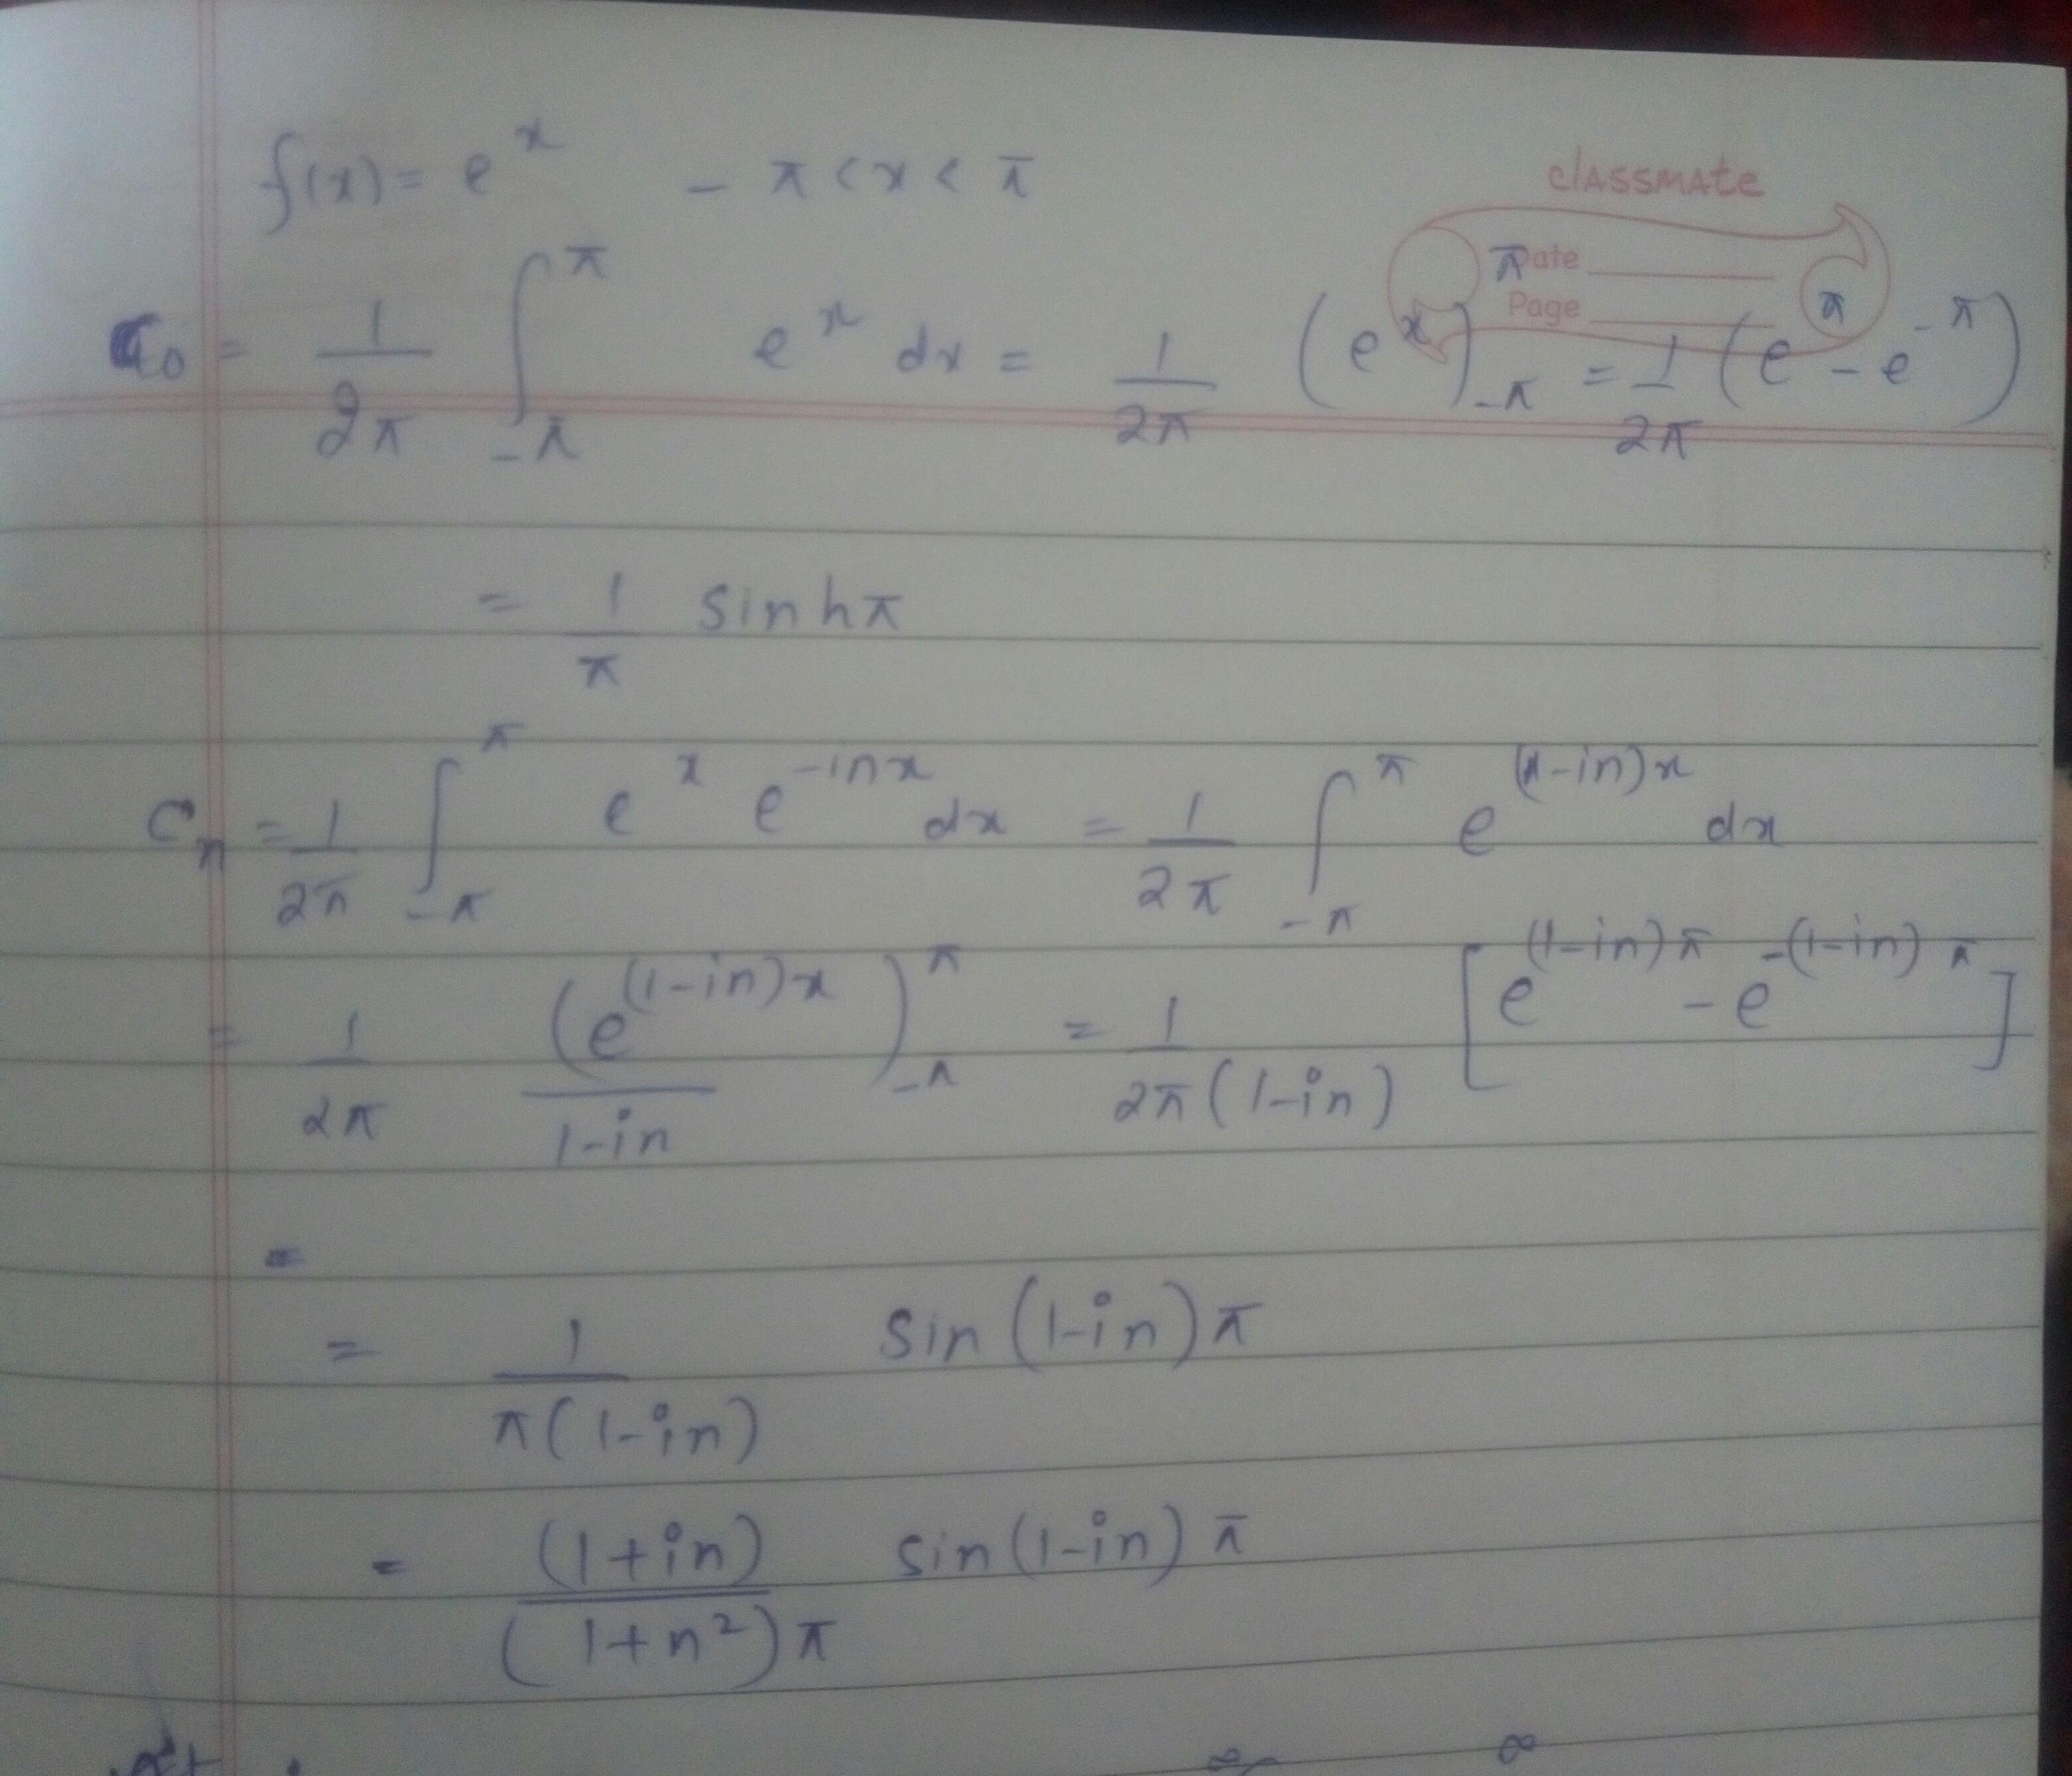 f(x) = e^x   - π < x < π
classmate
Date
Page
C₀ = 1/2π ∫_{-π}^{π} e^x dx = 1/2π (e^x)_{-π}^{π} = 1/2π (e^π - e^{-π})
= 1/π sinhπ
Cₙ = 1/2π ∫_{-π}^{π} e^x e^{-inx} dx = 1/2π ∫_{-π}^{π} e^{(1-in)x} dx
= 1/2π (e^{(1-in)x}/1-in)_{-π}^{π} = 1/2π(1-in) [e^{(1-in)π} - e^{-(1-in)π}]
=
= 1/π(1-in) sin(1-in)π
= (1+in)/(1+n²)π sin(1-in)π
∞ ∞